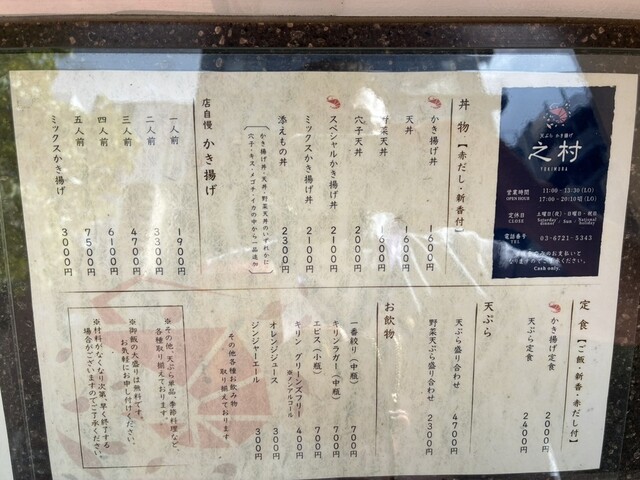 天ぷら かき揚げ
之村
YUKIMURA
営業時間 11:00 - 13:30 (LO)
OPEN HOUR 17:00 - 20:10 (LO)
定休日 土曜日(夜)・日曜日・祝日
CLOSE Saturday dinner・Sun・National holiday
電話番号 03-6721-5343
TEL
Cash only.
丼物【赤だし・新香付】
かき揚げ丼 1600円
天丼 1600円
野菜天丼 1600円
穴子天丼 2000円
スペシャルかき揚げ丼 2100円
ミックスかき揚げ丼 2100円
添えもの丼 2300円
(かき揚げ丼・天丼・野菜天丼のいずれかに
穴子・キス・メゴチ・イカの中から一品追加)
店自慢 かき揚げ
一人前 1900円
二人前 3300円
三人前 4700円
四人前 6100円
五人前 7500円
ミックスかき揚げ 3000円
定食【ご飯・新香・赤だし付】
かき揚げ定食 2000円
天ぷら定食 2400円
天ぷら
天ぷら盛り合わせ 4700円
野菜天ぷら盛り合わせ 2300円
お飲物
一番絞り(中瓶) 700円
キリンラガー(中瓶) 700円
エビス(小瓶) 700円
キリン グリーンズフリー 400円
※ノンアルコール
オレンジジュース 300円
ジンジャーエール 300円
その他各種お飲み物
取り揃えております
※その他、天ぷら単品、季節料理など
各種取り揃えております。
※御飯の大盛りは無料です。
お気軽にお申し付けください。
※材料がなくなり次第、早く終了する
場合がございますのでご了承ください。